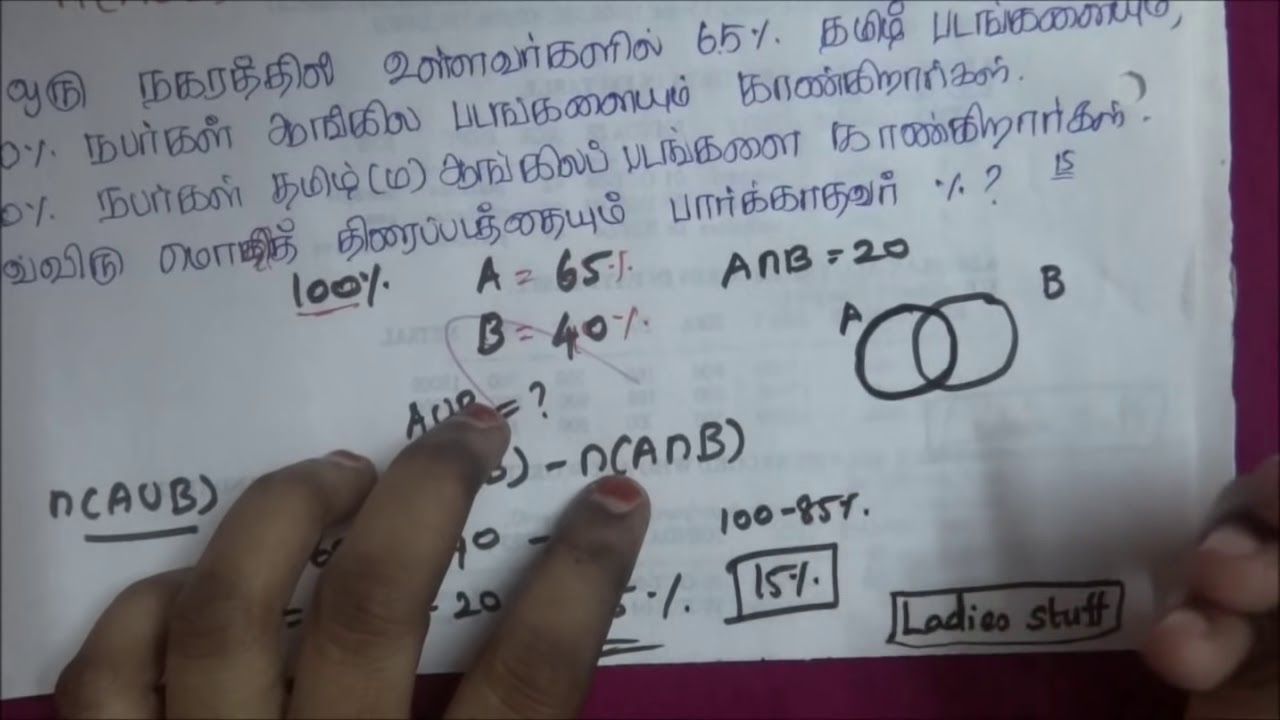 ஒரு நகரத்தில் உள்ளவர்களில் 65% தமிழ் படங்களையும்,
0% நபர்கள் ஆங்கில படங்களையும் காண்கிறார்கள்.
0% நபர்கள் தமிழ் (ம) ஆங்கிலப் படங்களை காண்கிறார்கள்.
வ்விரு மொழித் திரைப்படத்தையும் பார்க்காதவர் %? 15
100% A = 65% A∩B = 20
B = 40% A B
A∪B = ?
n(A∪B) B) - n(A∩B)
40 - 100-85%.
= 20 5% 15%
Ladies stuff